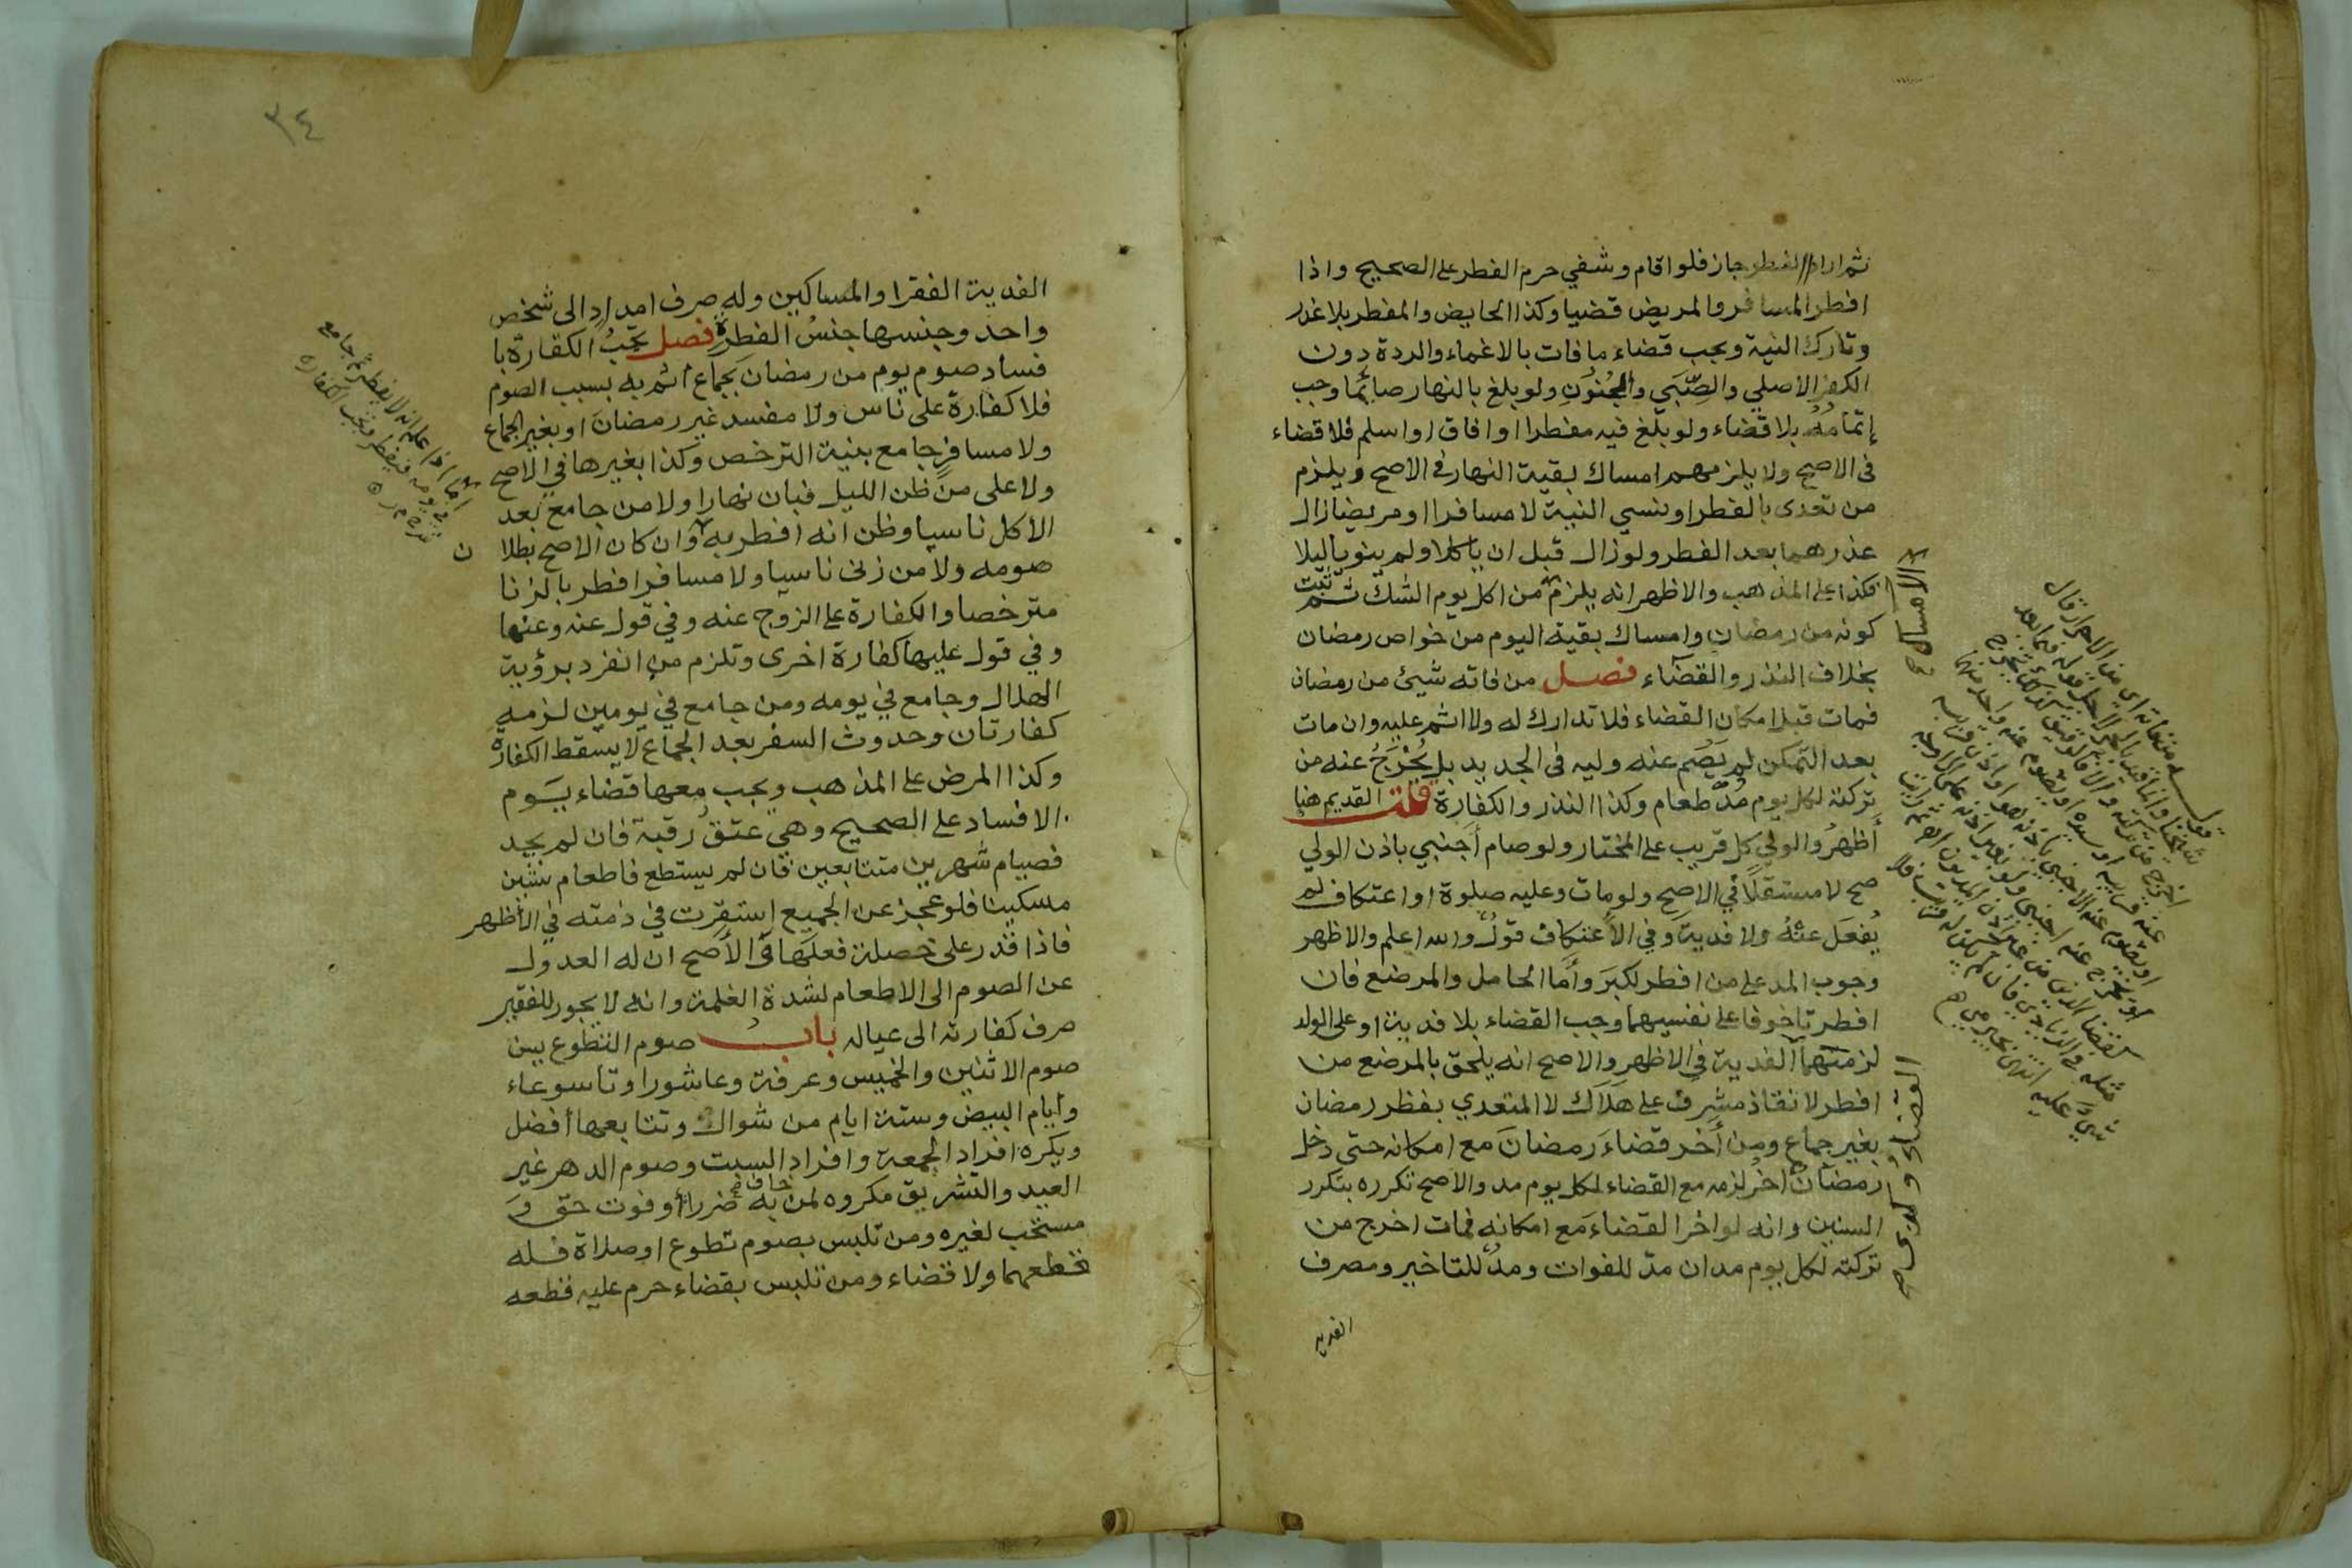 ثم اراد الفطر جاز فلو اقام وشفي حرم الفطر على الصحيح واذا
افطر المسافر والمريض قضيا وكذا الحايض والمفطر بلا عذر
وتارك النية ويجب قضاء ما فات بالاغماء والردة دون
الكفر الاصلي والصِّبَي والجُنُونِ ولو بلغ بالنهار صائمًا وجب
إتمامُهُ بلا قضاء ولو بلغ فيه مفطرا او افاق او اسلم فلا قضاء
فى الاصح ولا يلزمهم امساك بقية النهار فى الاصح ويلزم
من تعدى بالفطر او نسي النية لا مسافرا او مريضا زال
عذرهما بعد الفطر ولو زال قبل ان ياكلا ولم ينويا ليلا
فكذا على المذهب والاظهر انه يلزم من اكل يوم الشك ثم ثبت
كونه من رمضان وامساك بقية اليوم من خواص رمضان
بخلاف النذر والقضاء فصل من فاته شيئ من رمضان
فمات قبل امكان القضاء فلا تدارك له ولا اثم عليه وان مات
بعد التمكن لم يَصُم عنه وليه فى الجديد بل يُخْرَجُ عنه من
تركته لكل يوم مُدّ طعام وكذا النذر والكفارة قلت القديم هنا
أَظهرُ والولي كل قريب على المختار ولو صام أجنبي باذن الولي
صح لا مستقلًا في الاصح ولو مات وعليه صلوة او اعتكاف لم
يُفعَل عنهُ ولا فدية وفي الاعتكاف قولٌ والله اعلم والاظهر
وجوب المد على من افطر لكبرَ وأَما الحامل والمرضع فان
افطرتا خوفا على نفسيهما وجب القضاء بلا فدية او على الولد
لزمتهما الفدية في الاظهر والاصح انه يلحق بالمرضع من
افطر لانقاذ مشرف على هلاك لا المتعدي بفطر رمضان
بغير جماع ومن أخر قضاءَ رمضانَ مع امكانه حتى دخل
رمضان اخر لزمه مع القضاء لكل يوم مد والاصح تكرره بتكرر
السنين وانه لو اخر القضاءَ مَع امكانه فمات اخرج من
تركته لكل يوم مدان مدّ للفوات ومدٌ للتاخير ومصرف
الفدية
الامساك
القضاء وكذى
٣٤
الفدية الفقرا والمساكين وله صرف امداد الى شخص
واحد وجنسها جنسُ الفطرةِ فصل تجبُ الكفارة با
فساد صوم يوم من رمضان بجماع اثم به بسبب الصوم
فلا كفارة على ناس ولا مفسد غير رمضانَ او بغير الجماع
ولا مسافرٍ جامع بنية الترخص وكذا بغيرها في الاصح
ولا على من ظن الليل فبان نهارا ولا من جامع بعد
الاكل ناسيا وظن انه افطر به وان كان الاصح بطلا
ن
صومه ولا من زنى ناسيا ولا مسافرا فطر بالزنا
مترخصا والكفارة على الزوج عنه وفي قول عنه وعنها
وفي قول عليها كفارة اخرى وتلزم من انفرد برؤية
الهلال وجامع في يومه ومن جامع في يومين لزمه
كفارتان وحدوث السفر بعد الجماع لا يسقط الكفارة
وكذا المرض على المذهب ويجب معها قضاء يوم
الافساد على الصحيح وهي عتق رقبة فان لم يجد
فصيام شهرين متتابعين فان لم يستطع فاطعام ستين
مسكينا فلو عجز عن الجميع استقرت في ذمته في الأظهر
فاذا قدر على خصلة فعلها فى الأصح ان له العدول
عن الصوم الى الاطعام لشدة الغلمة وانه لا يجوز للفقير
صرف كفارته الى عياله باب صوم التطوع يسن
صوم الاثنين والخميس وعرفة وعاشورا وتاسوعاء
وأيام البيض وستة ايام من شوال وتتابعها أفضل
ويكره افراد الجمعة وافراد السبت وصوم الدهر غير
العيد والتشريق مكروه لمن خاف به ضررا أو فوت حق وَ
مستحب لغيره ومن تلبس بصوم تطوع او صلاة فله
قطعهما ولا قضاء ومن تلبس بقضاء حرم عليه قطعه